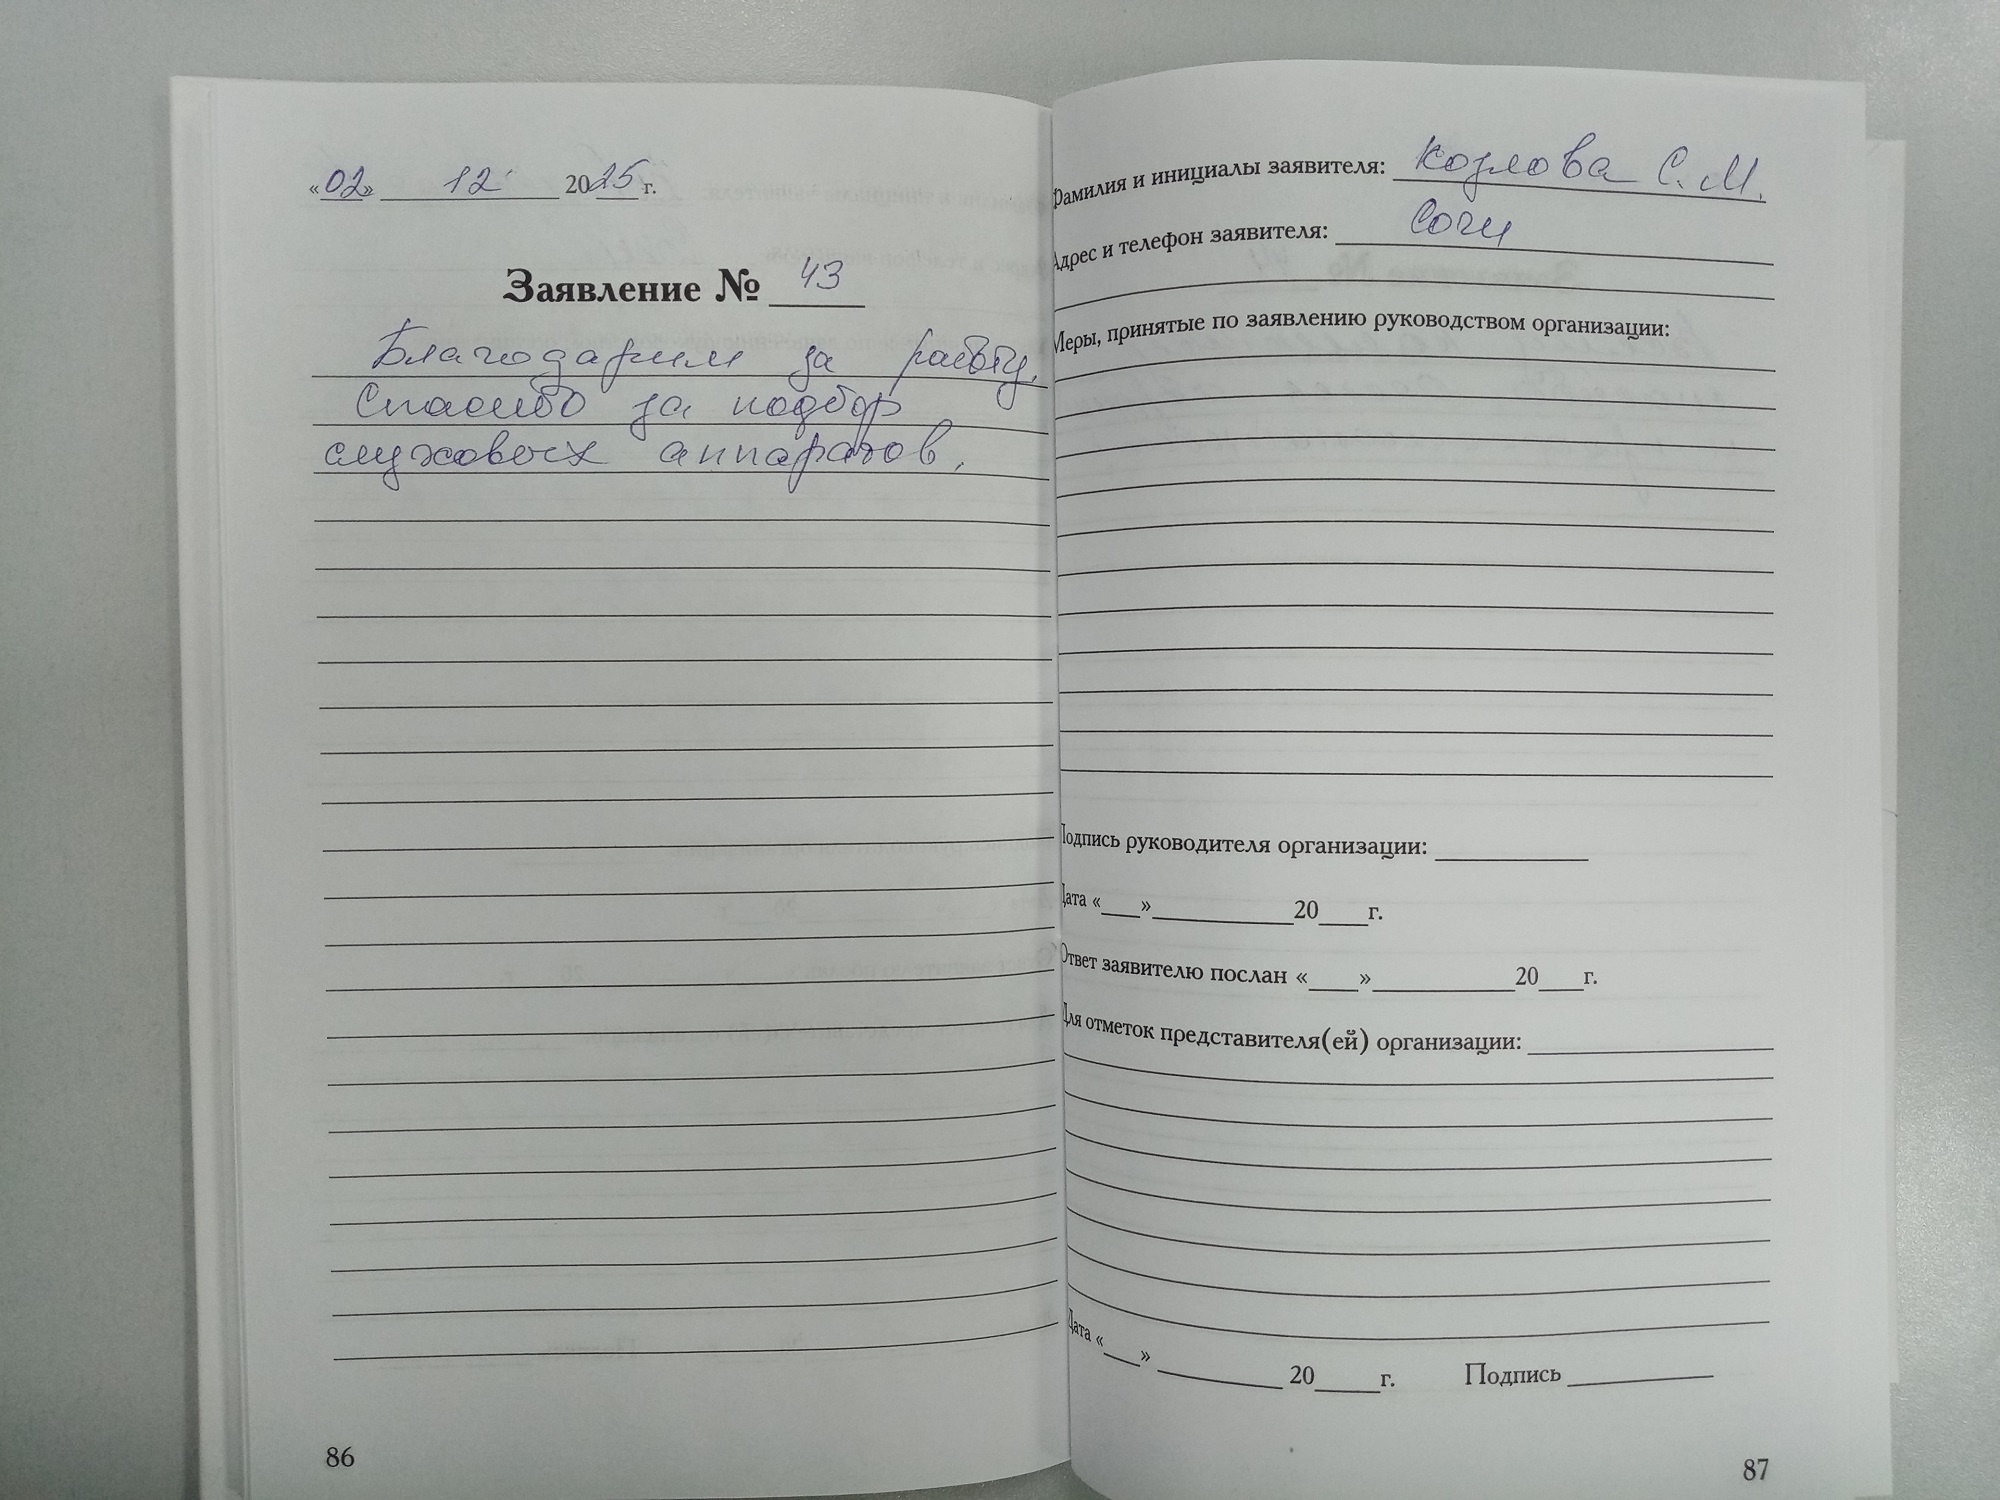 «02» 12 2025 г.
Заявление № 43
Благодарим за работу.
Спасибо за подбор
слуховых аппаратов.
86
Фамилия и инициалы заявителя: Козлова С. М.
Адрес и телефон заявителя: Сочи
Меры, принятые по заявлению руководством организации:
Подпись руководителя организации:
Дата «___»__________20___г.
Ответ заявителю послан «___»__________20___г.
Для отметок представителя(ей) организации:
Дата «___» __________ 20___г. Подпись __________
87